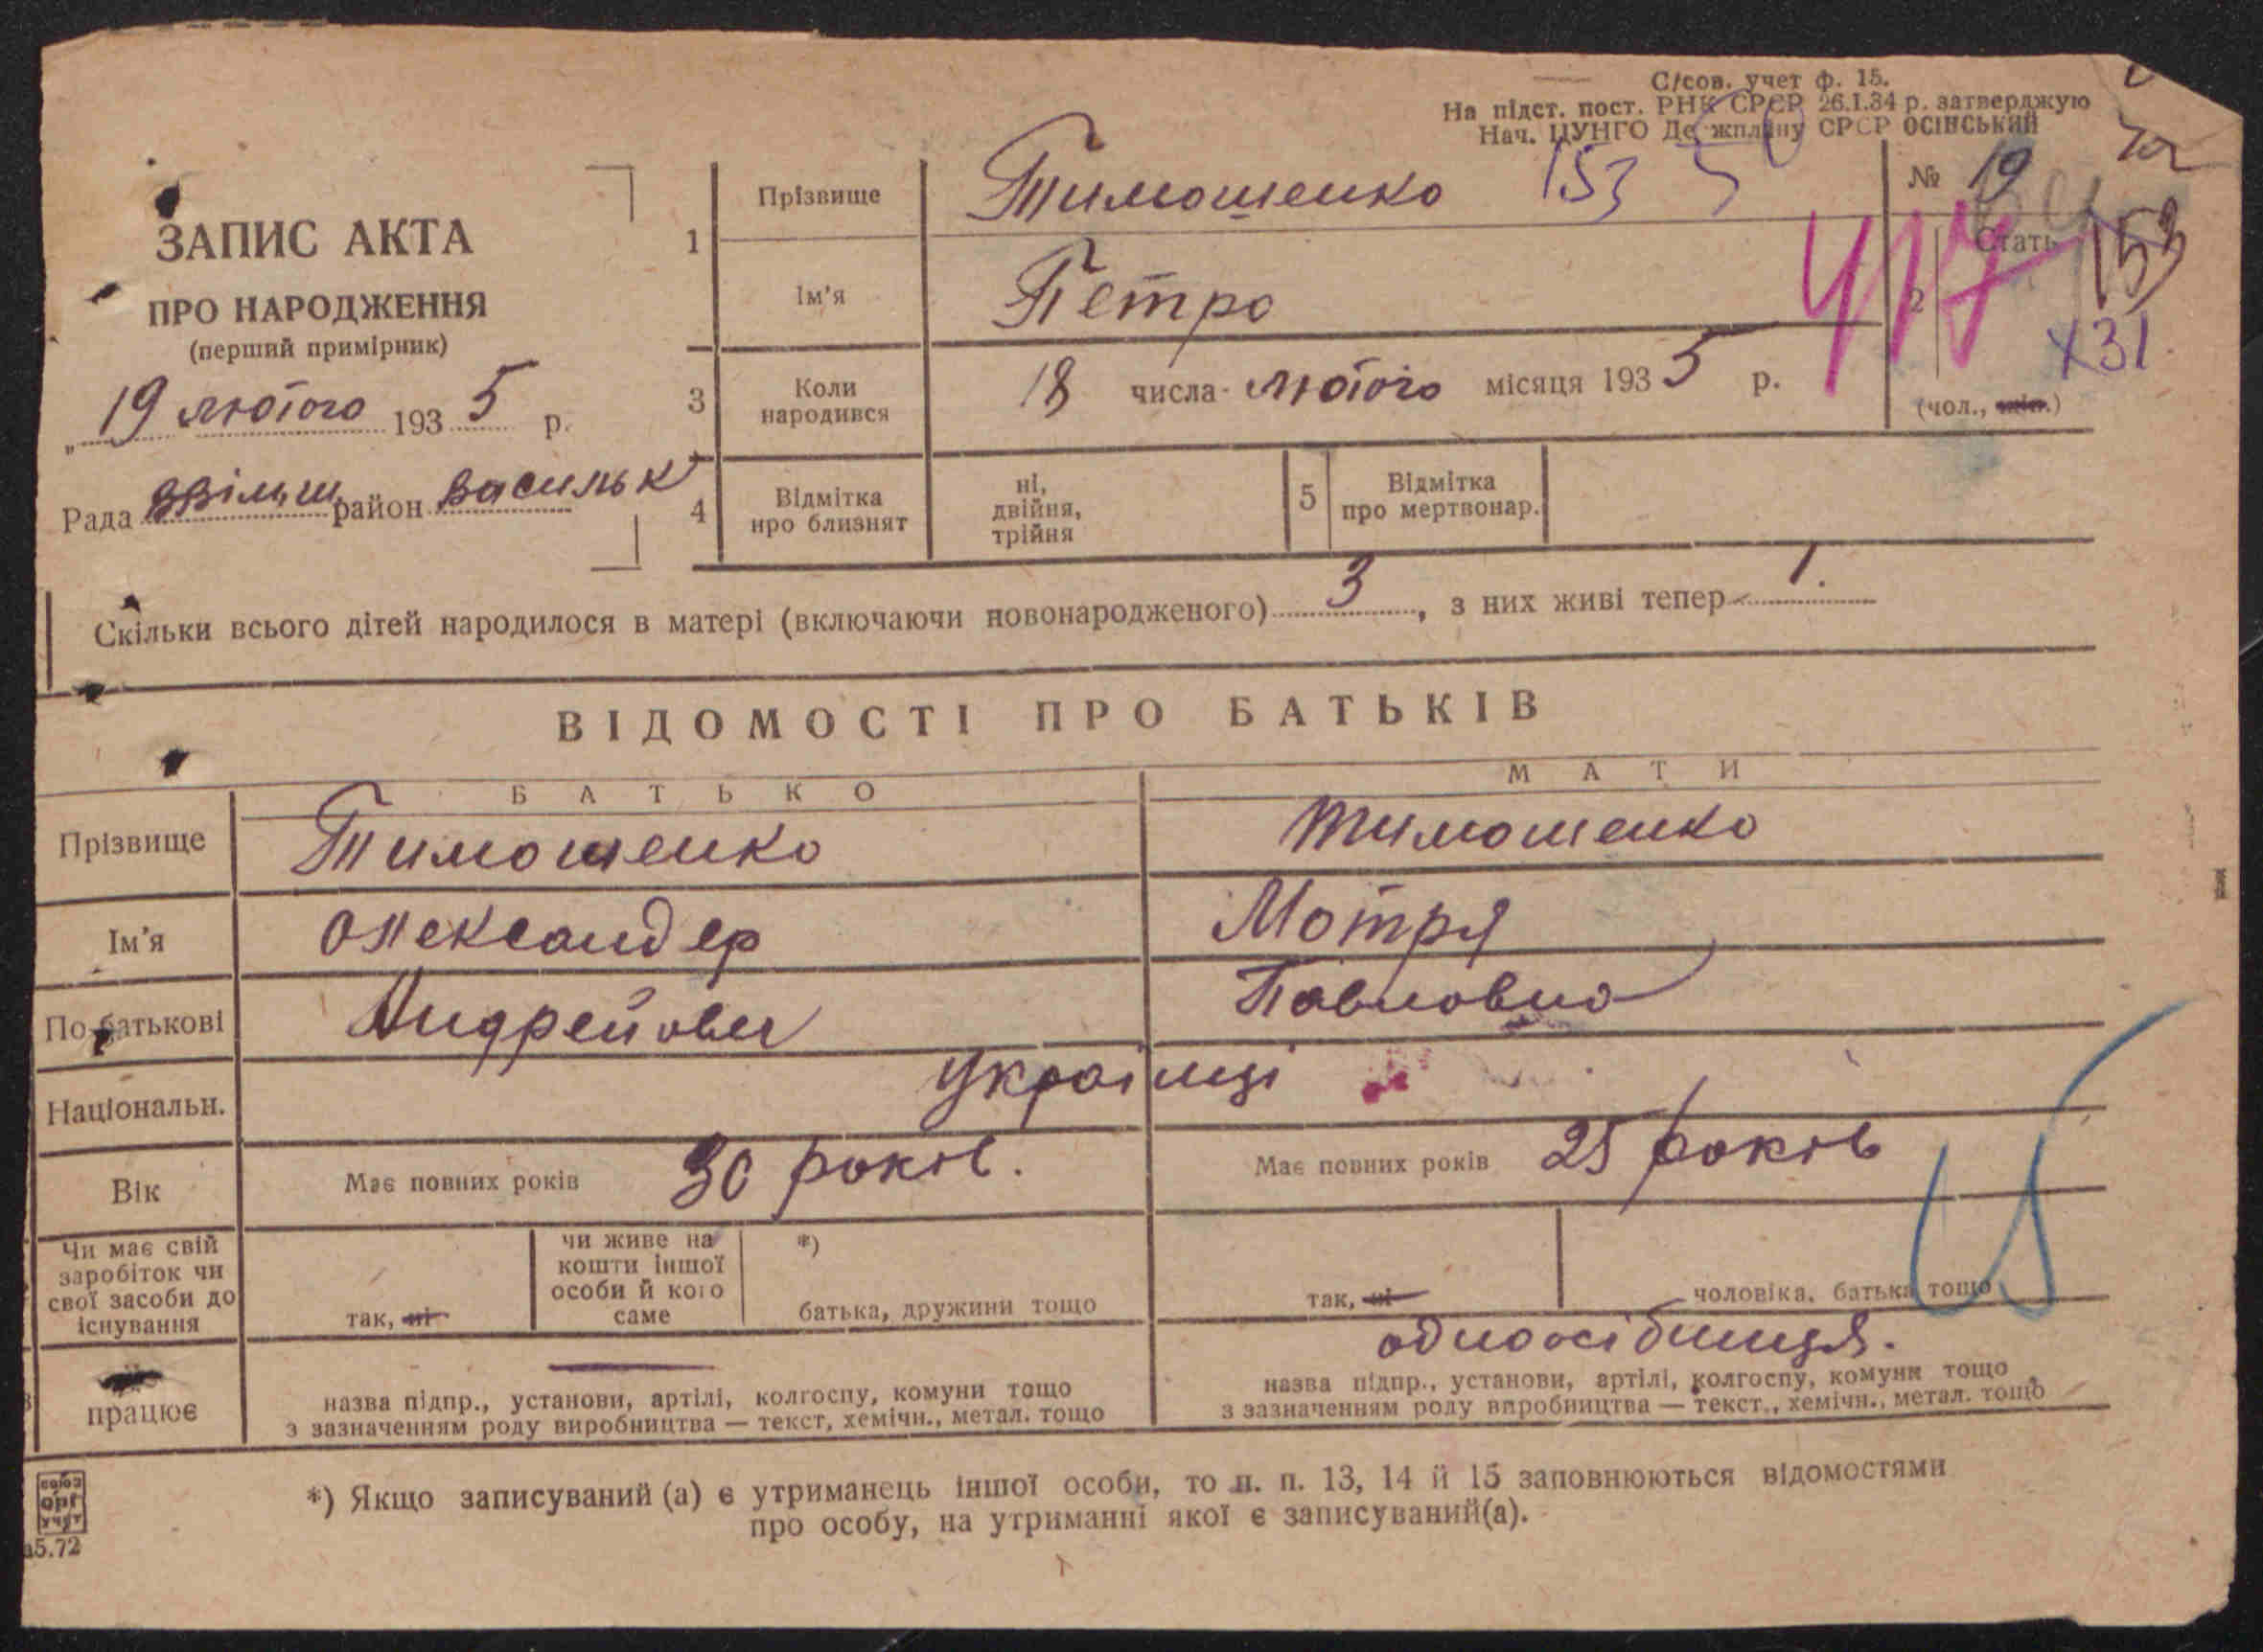 С/сов. учет ф. 15.
На підст. пост. РНК СРСР 26.I.34 р. затверджую
Нач. ЦУНГО Держплану СРСР ОСІНСЬКИЙ
153
№ 19
ЗАПИС АКТА
ПРО НАРОДЖЕННЯ
(перший примірник)
„ 19 лютого 1935 р.
Рада район Васильк
1 Прізвище Тимошенко
Ім'я Петро
2 Стать
417
153
х31
(чол., жін.)
3 Коли народився 18 числа лютого місяця 1935 р.
4 Відмітка про близнят
ні,
двійня,
трійня
5 Відмітка про мертвонар.
Скільки всього дітей народилося в матері (включаючи новонародженого) 3, з них живі тепер 1.
ВІДОМОСТІ ПРО БАТЬКІВ
БАТЬКО МАТИ
Прізвище Тимошенко Тимошенко
Ім'я Олександер Мотря
По батькові Андрейович Павловна
Національн. Українці
Вік Має повних років 30 років. Має повних років 25 років
Чи має свій
заробіток чи
свої засоби до
існування
так, ні
чи живе на
кошти іншої
особи й кого
саме
*)
батька, дружини тощо
так, ні
чоловіка, батька тощо
працює
одноосібниця.
назва підпр., установи, артілі, колгоспу, комуни тощо
з зазначенням роду виробництва — текст, хемічн., метал. тощо
назва підпр., установи, артілі, колгоспу, комуни тощо
з зазначенням роду виробництва — текст., хемічн., метал. тощо
*) Якщо записуваний (а) є утриманець іншої особи, то п. п. 13, 14 й 15 заповнюються відомостями
про особу, на утриманні якої є записуваний(а).
союз
орг
учет
а5.72